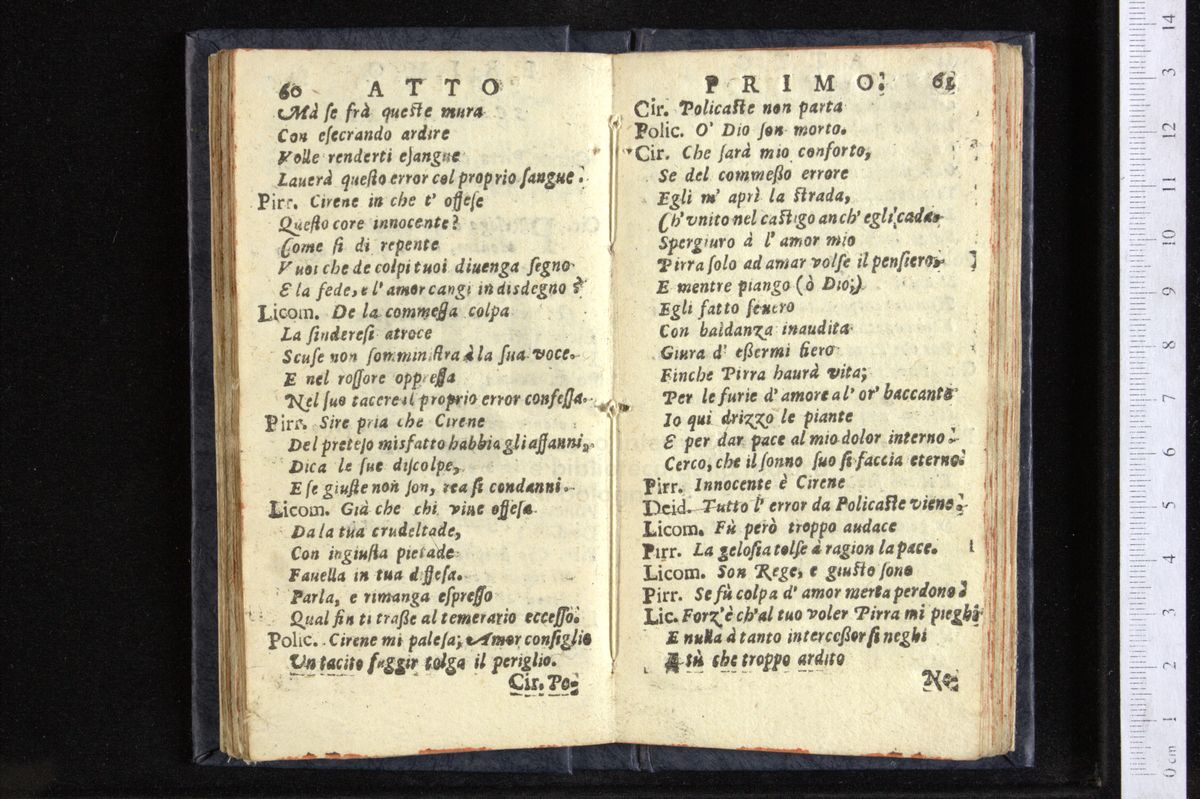 60 ATTO
Mà se frà queste mura
Con esecrando ardire
Volle renderti esangue
Lauerà questo error col proprio sangue.
Pirr. Cirene in che t' offese
Questo core innocente?
Come si di repente
Vuoi che de colpi tuoi diuenga segno
E la fede, e l' amor cangi in disdegno?
Licom. De la commessa colpa
La sinderesi atroce
Scuse non somministra à la sua voce.
E nel rossore oppressa
Nel suo tacere il proprio error confessa.
Pirr. Sire pria che Cirene
Del preteso misfatto habbia gli affanni,
Dica le sue discolpe,
E se giuste non son, rea si condanni.
Licom. Già che chi viue offesa
Da la tua crudeltade,
Con ingiusta pietade
Fauella in tua diffesa.
Parla, e rimanga espresso
Qual fin ti trasse al temerario eccesso.
Polic. Cirene mi palesa; Amor consiglio
Un tacito fuggir tolga il periglio.
Cir. Po-
PRIMO. 61
Cir. Policaste non parta
Polic. O' Dio son morto.
Cir. Che sarà mio conforto,
Se del commesso errore
Egli m' aprì la strada,
Ch' vnito nel castigo anch' egli cada.
Spergiuro à l' amor mio
Pirra solo ad amar volse il pensiero,
E mentre piango (ò Dio;)
Egli fatto seuero
Con baldanza inaudita
Giura d' essermi fiero
Finche Pirra haurà vita;
Per le furie d' amore al' or' baccante
Io qui drizzo le piante
E per dar pace al mio dolor interno
Cerco, che il sonno suo si faccia eterno.
Pirr. Innocente è Cirene
Deid. Tutto l' error da Policaste viene.
Licom. Fù però troppo audace
Pirr. La gelosia tolse à ragion la pace.
Licom. Son Rege, e giusto sono
Pirr. Se fù colpa d' amor merta perdono.
Lic. Forz' è ch' al tuo voler Pirra mi pieghi
E nulla à tanto intercessor si neghi
A tù che troppo ardito
Ne